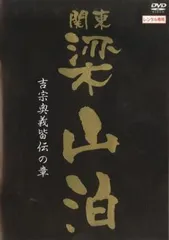 関東
梁山泊
吉宗奥義皆伝の章
DVD
レンタル専用